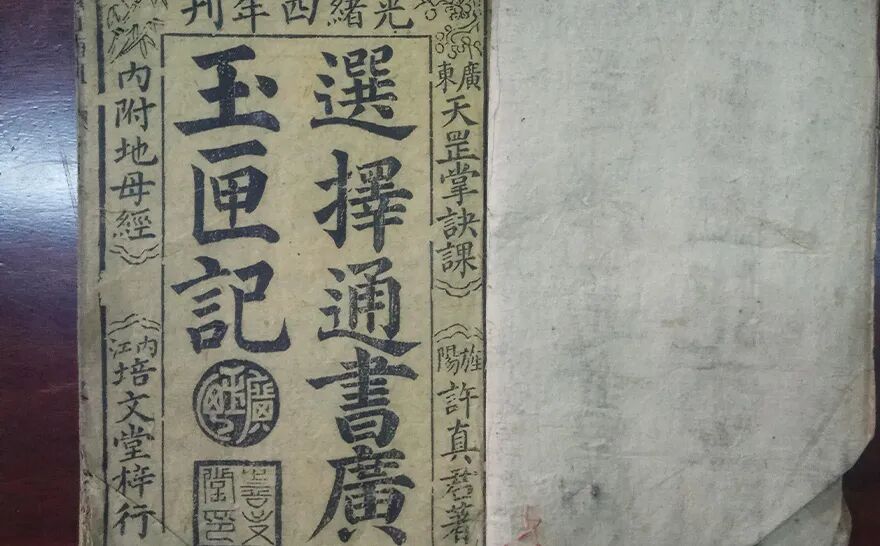 光緒四年刊
廣東天罡掌訣課
旌陽許真君著
選擇通書廣
玉匣記
內附地母經
內江培文堂梓行